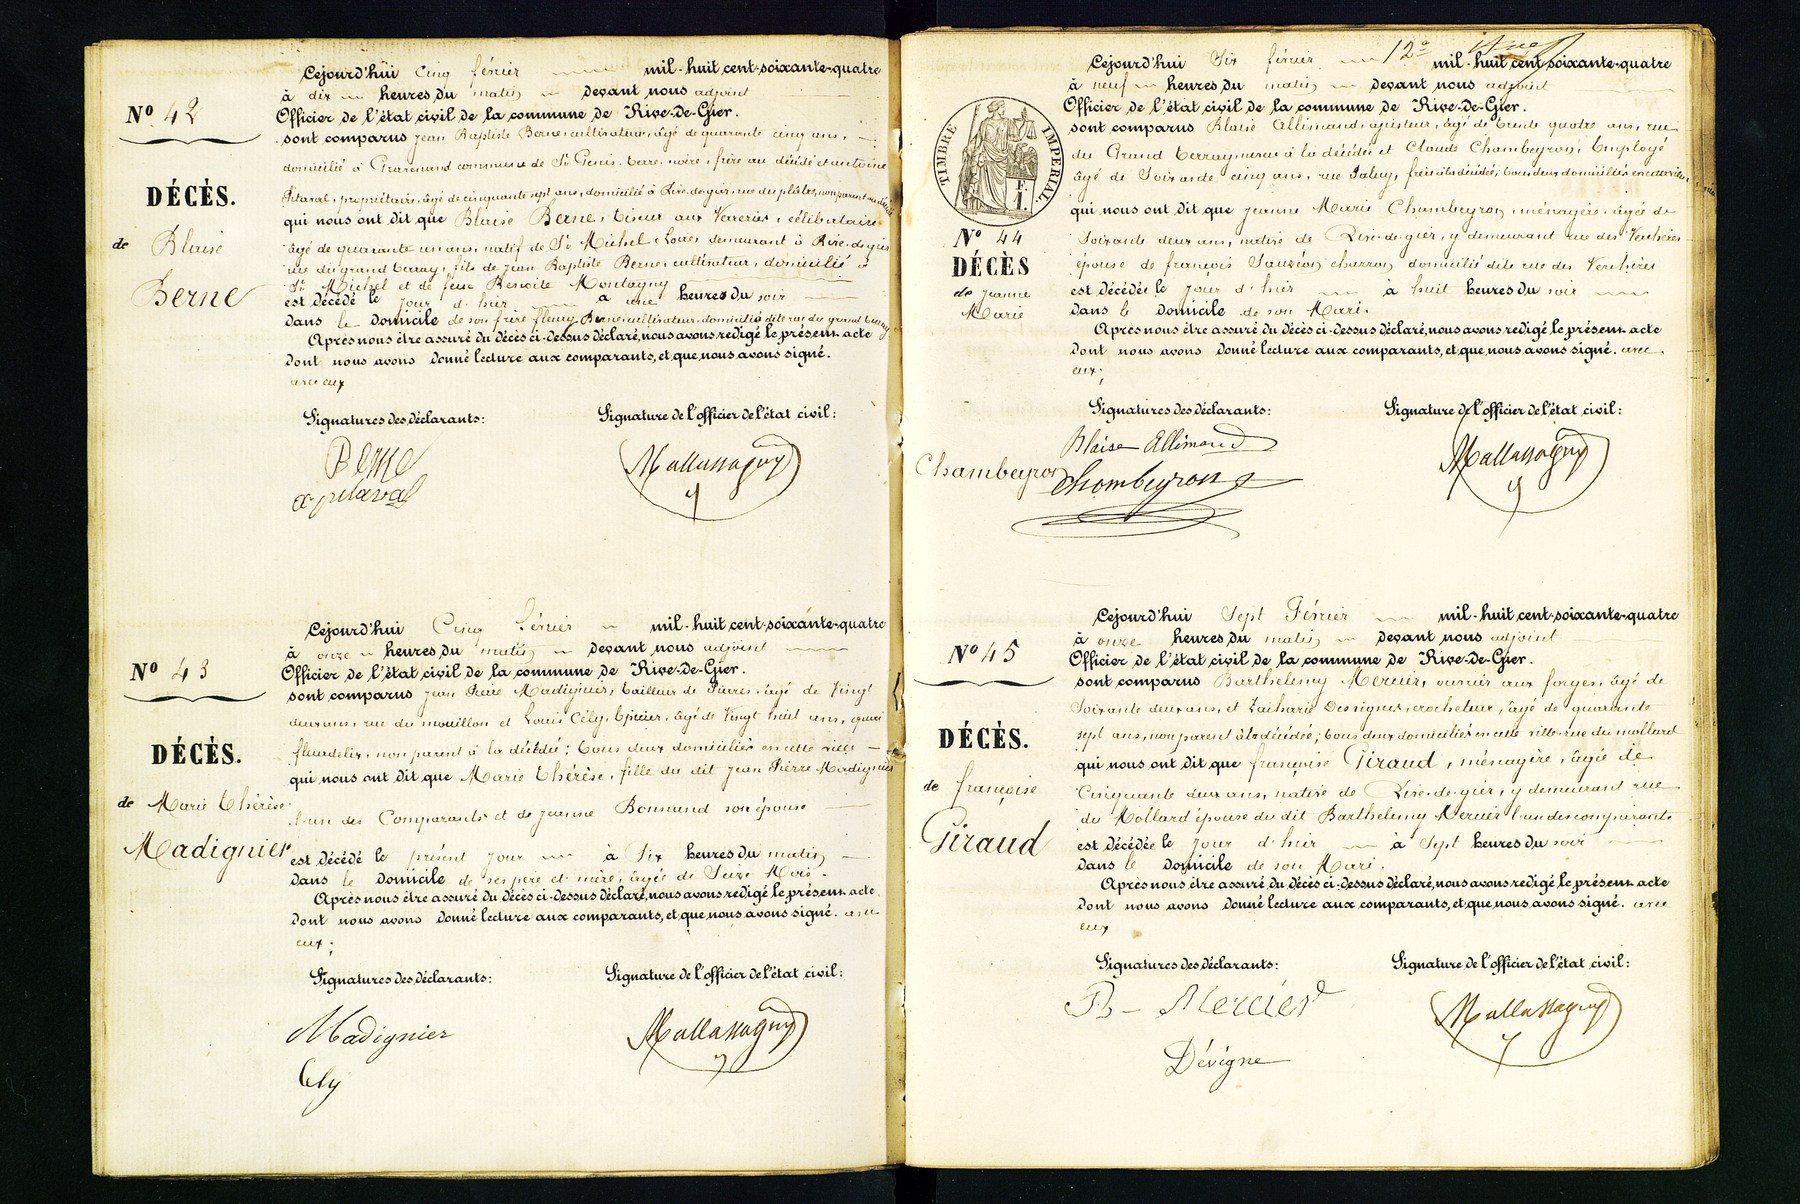 Cejourd'hui Cinq février mil-huit cent-soixante-quatre
à dix heures du matin devant nous adjoint
Officier de l'état civil de la commune de Rive-de-Gier.
sont comparus Jean Baptiste Berne, cultivateur, âgé de quarante cinq ans,
domicilié à commune de St Genis terre-noire, frère au décédé et antoine
Pitaval, propriétaire, âgé de cinquante sept ans, domicilié à Rive-de-gier, rue du plâtre, non parent au décédé
qui nous ont dit que Blaise Berne, tiseur aux Verreries, célibataire
âgé de quarante un ans, natif de St Michel, Loire, demeurant à Rive-de-gier
rue du grand terray, fils de Jean Baptiste Berne, cultivateur, domicilié à
St Michel et de feue Benoite Montagny
est décédé le jour d'hier à une heures du soir
dans le domicile de son frère fleury Berne, cultivateur, domicilié dite rue du grand terray
Après nous être assuré du décès ci-dessus déclaré, nous avons redigé le présent acte
dont nous avons donné lecture aux comparants, et que nous avons signé.
avec eux
Nº 42
DÉCÈS.
de Blaise
Berne
Signatures des déclarants: Signature de l'officier de l'état civil:
Berne
a pitaval
Mallassagny
Cejourd'hui Cinq février mil-huit cent-soixante-quatre
à onze heures du matin devant nous adjoint
Officier de l'état civil de la commune de Rive-de-Gier.
sont comparus Jean Pierre Madignier, tailleur de Pierres, âgé de Vingt
deux ans, rue du mouillon et Louis Cély, Epicier, âgé de Vingt huit ans, quai
fleurdelix, non parent à la décédée; tous deux domiciliés en cette ville
qui nous ont dit que Marie thérèse, fille du dit Jean Pierre Madignier
l'un des Comparants et de Jeanne Bonnand son épouse
est décédé le présent jour à Six heures du matin
dans le domicile de ses père et mère, âgée de Seize Mois.
Après nous être assuré du décès ci-dessus déclaré, nous avons redigé le présent acte
dont nous avons donné lecture aux comparants, et que nous avons signé. avec
eux;
Nº 43
DÉCÈS.
de Marie thérèse
Madignier
Signatures des déclarants: Signature de l'officier de l'état civil:
Madignier
Cely
Mallassagny
12e
Cejourd'hui Six février mil-huit cent-soixante-quatre
à neuf heures du matin devant nous adjoint
Officier de l'état civil de la commune de Rive-de-Gier.
sont comparus Blaise Allimand, ajusteur, âgé de trente quatre ans, rue
du Grand terray, neveu à la décédée et Claude Chambeyron, Employé
âgé de Soixante cinq ans, rue Paluy, frère à la décédée, tous deux domiciliés en cette ville,
qui nous ont dit que Jeanne Marie Chambeyron, ménagère, âgée de
Soixante deux ans, native de Rive-de-gier, y demeurant rue des Verchères
épouse de françois Sauzéon charron domicilié dite rue des Verchères
est décédée le jour d'hier à huit heures du soir
dans le domicile de son Mari.
Après nous être assuré du décès ci-dessus déclaré, nous avons redigé le présent acte
dont nous avons donné lecture aux comparants, et que nous avons signé. avec
eux;
TIMBRE IMPÉRIAL.
F.
1.
Nº 44
DÉCÈS
de Jeanne
Marie
Chambeyron
Signatures des déclarants: Signature de l'officier de l'état civil:
Blaise Allimand
Chambeyron
Mallassagny
Cejourd'hui Sept Février mil-huit cent-soixante-quatre
à onze heures du matin devant nous adjoint
Officier de l'état civil de la commune de Rive-de-Gier.
sont comparus Barthelemy Mercier, ouvrier aux forges, âgé de
Soixante deux ans, et Zacharie Dessignes, crocheteur, âgé de quarante
sept ans, non parent à la décédée; tous deux domiciliés en cette ville rue du mollard
qui nous ont dit que françoise Giraud, ménagère, âgée de
Cinquante deux ans, native de Rive-de-gier, y demeurant rue
du Mollard épouse du dit Barthelemy Mercier l'un des comparants
est décédée le jour d'hier à Sept heures du soir
dans le domicile de son Mari.
Après nous être assuré du décès ci-dessus déclaré, nous avons redigé le présent acte
dont nous avons donné lecture aux comparants, et que nous avons signé. avec
eux
Nº 45
DÉCÈS.
de françoise
Giraud
Signatures des déclarants: Signature de l'officier de l'état civil:
B - Mercier
Dévigne
Mallassagny